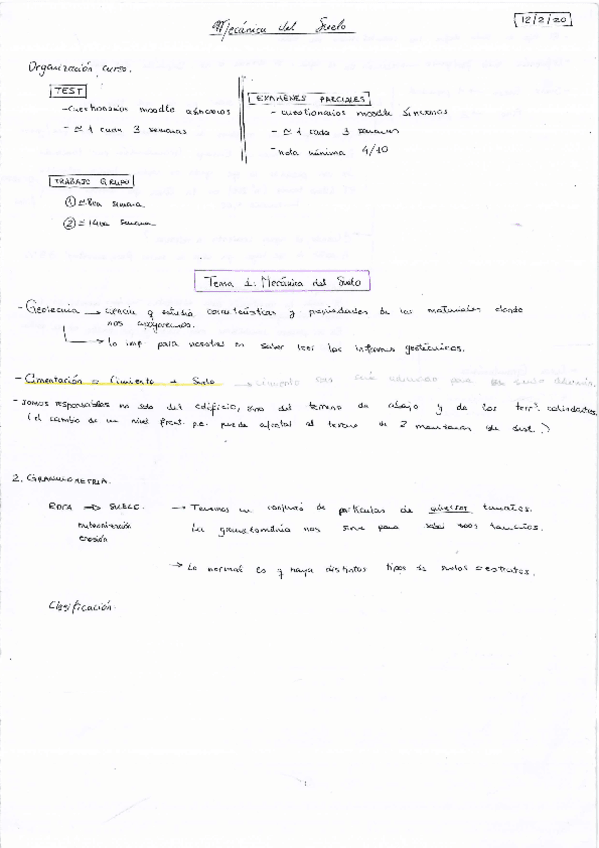 Mecánica del Suelo
12/2/20
Organización curso.
TEST
- cuestionarios moodle asíncronos
- ≃ 1 cada 3 semanas
EXÁMENES PARCIALES
- cuestionarios moodle síncronos
- ≃ 1 cada 3 semanas
- nota mínima 4/10
TRABAJO GRUPO
① = 8va semana.
② = 14va semana.
Tema 1: Mecánica del Suelo
- Geotecnia → ciencia q estudia características y propiedades de los materiales donde
nos apoyaremos.
→ lo imp para nosotros es saber leer los informes geotécnicos.
- Cimentación = Cimiento + Suelo → cimiento para
- somos responsables no solo del edificio, sino del terreno de abajo y de los terr. colindantes.
(el cambio de un nivel freát. p.e. puede afectar al terreno de 2 manzanas de dist.)
2. GRANULOMETRÍA.
ROCA → SUELO.
meteorización
erosión
→ Tenemos un conjunto de partículas de diversos tamaños.
La granulometría nos sirve para saber esos tamaños.
→ Lo normal es q haya distintos tipos de suelos = estratos.
Clasificación.